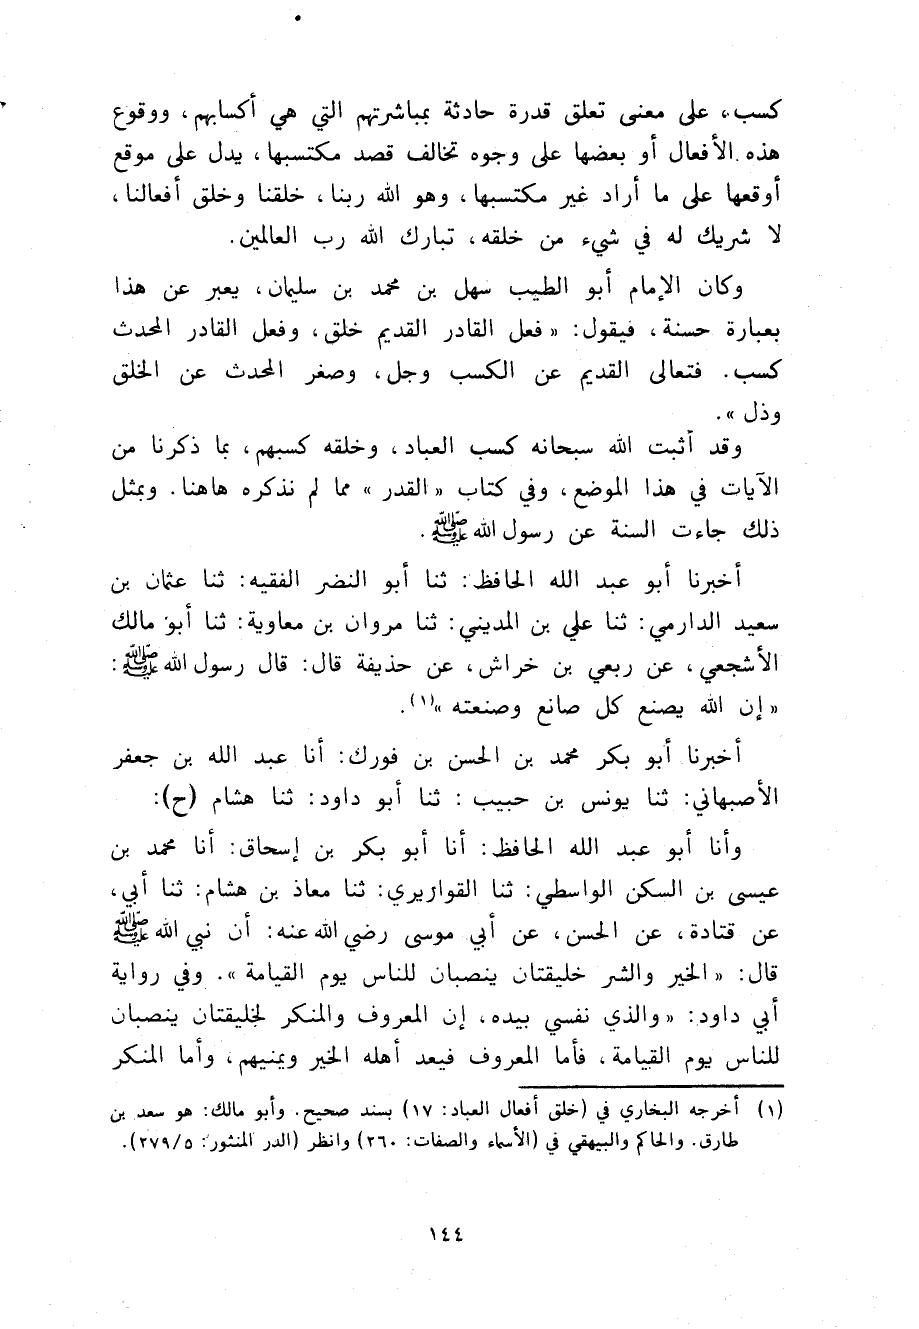 كسب، على معنى تعلق قدرة حادثة بمباشرتهم التي هي أكسابهم، ووقوع
هذه الأفعال أو بعضها على وجوه تخالف قصد مكتسبها، يدل على موقع
أوقعها على ما أراد غير مكتسبها، وهو الله ربنا، خلقنا وخلق أفعالنا،
لا شريك له في شيء من خلقه، تبارك الله رب العالمين.
وكان الإمام أبو الطيب سهل بن محمد بن سليمان، يعبر عن هذا
بعبارة حسنة، فيقول: « فعل القادر القديم خلق، وفعل القادر المحدث
كسب. فتعالى القديم عن الكسب وجل، وصغر المحدث عن الخلق
وذل ».
وقد أثبت الله سبحانه كسب العباد، وخلقه كسبهم، بما ذكرنا من
الآيات في هذا الموضع، وفي كتاب « القدر » مما لم نذكره هاهنا. وبمثل
ذلك جاءت السنة عن رسول الله ﷺ.
أخبرنا أبو عبد الله الحافظ: ثنا أبو النضر الفقيه: ثنا عثمان بن
سعيد الدارمي: ثنا علي بن المديني: ثنا مروان بن معاوية: ثنا أبو مالك
الأشجعي، عن ربعي بن خراش، عن حذيفة قال: قال رسول الله ﷺ:
« إن الله يصنع كل صانع وصنعته »(١).
أخبرنا أبو بكر محمد بن الحسن بن فورك: أنا عبد الله بن جعفر
الأصبهاني: ثنا يونس بن حبيب: ثنا أبو داود: ثنا هشام (ح):
وأنا أبو عبد الله الحافظ: أنا أبو بكر بن إسحاق: أنا محمد بن
عيسى بن السكن الواسطي: ثنا القواريري: ثنا معاذ بن هشام: ثنا أبي،
عن قتادة، عن الحسن، عن أبي موسى رضي الله عنه: أن نبي الله ﷺ
قال: « الخير والشر خليقتان ينصبان للناس يوم القيامة ». وفي رواية
أبي داود: « والذي نفسي بيده، إن المعروف والمنكر لخليقتان ينصبان
للناس يوم القيامة، فأما المعروف فيعد أهله الخير ويمنيهم، وأما المنكر
(١) أخرجه البخاري في (خلق أفعال العباد: ١٧) بسند صحيح. وأبو مالك: هو سعد بن
طارق. والحاكم والبيهقي في (الأسماء والصفات: ٢٦٠) وانظر (الدر المنثور: ٢٧٩/٥).
١٤٤